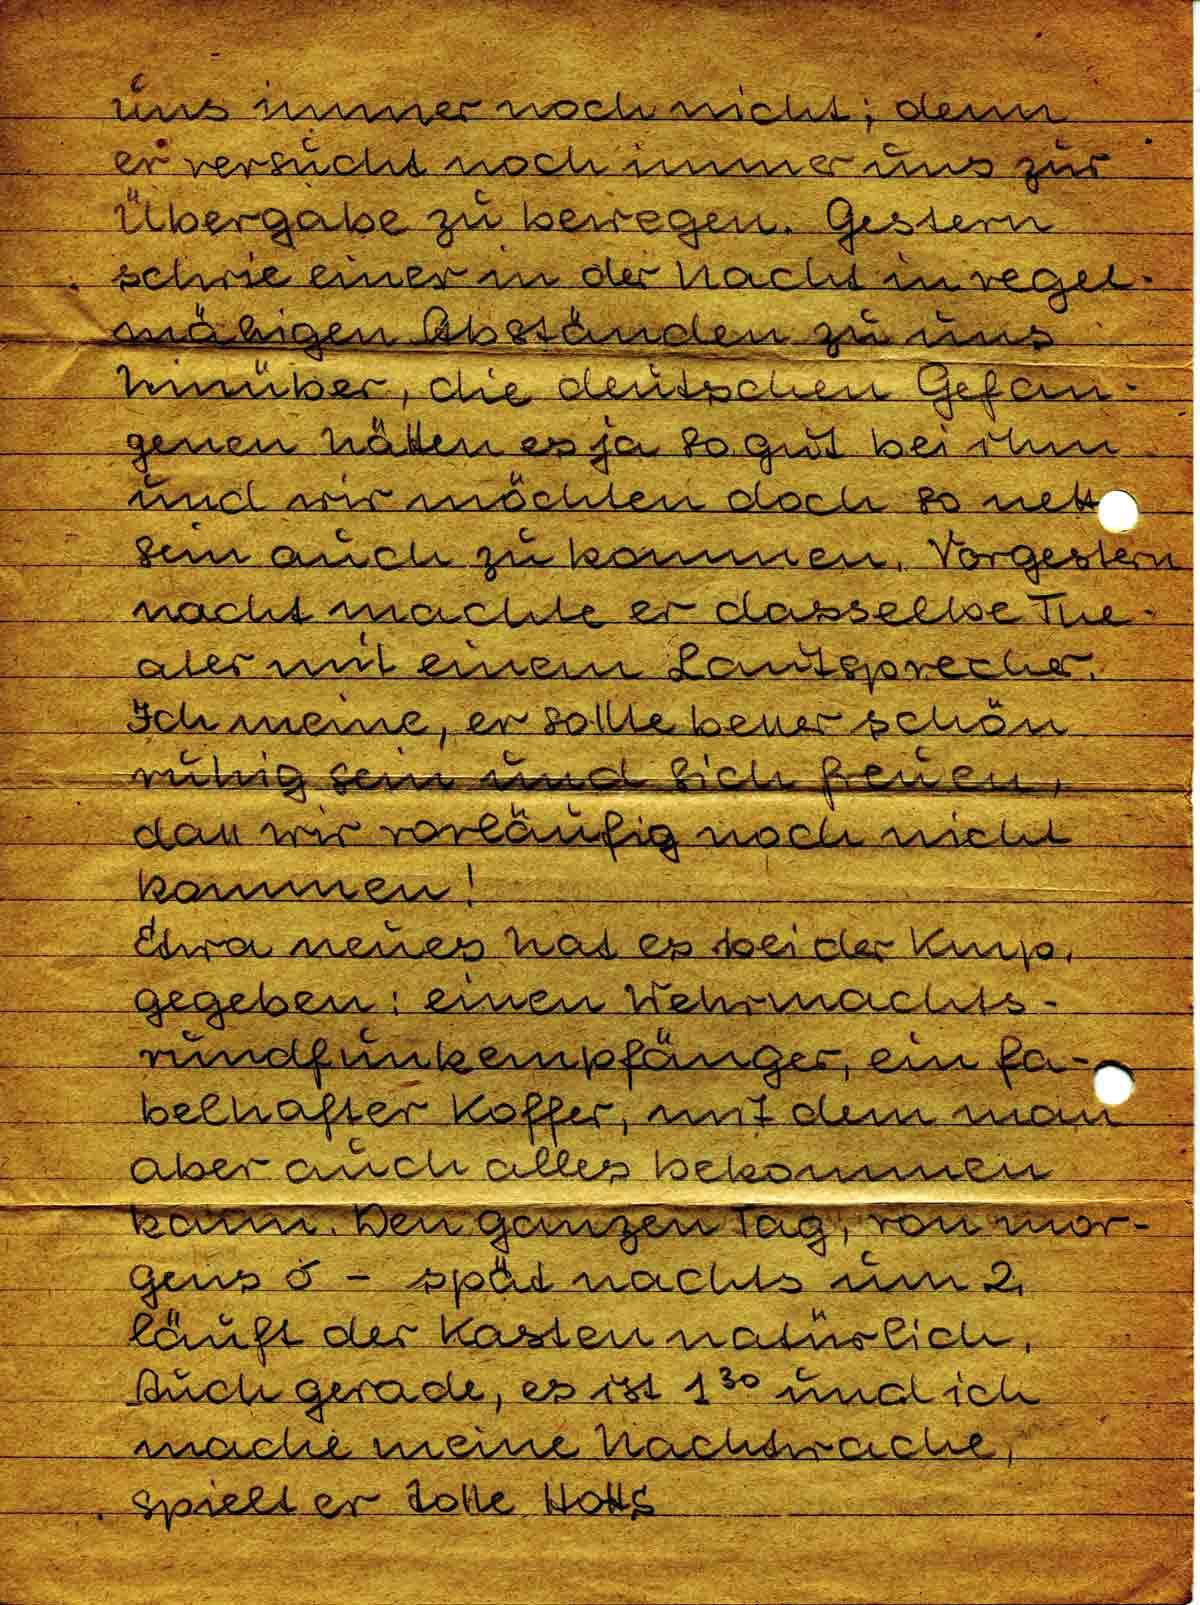 uns immer noch nicht; denn
er versucht noch immer uns zur
Übergabe zu bewegen. Gestern
schrie einer in der Nacht in regel-
mäßigen Abständen zu uns
hinüber, die deutschen Gefan-
genen hätten es ja so gut bei ihm
und wir möchten doch so nett
sein auch zu kommen. Vorgestern
nacht machte er dasselbe The-
ater mit einem Lautsprecher.
Ich meine, er sollte besser schön
ruhig sein und sich freuen,
dass wir vorläufig noch nicht
kommen!
Etwa neues hat es bei der Knup.
gegeben: einen Wehrmachts-
rundfunkempfänger, ein fa-
belhafter Koffer, mit dem man
aber auch alles bekommen
kann. Den ganzen Tag, von mor-
gens 6 - spät nachts um 2,
läuft der Kasten natürlich.
Auch gerade, es ist 1³⁰ und ich
mache meine Nachtwache,
spielt er tolle Hotts